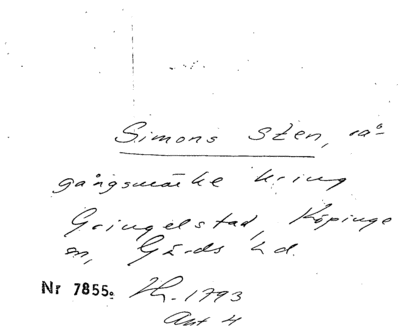 Simons Sten, rå-
gångsmärke kring
Gringelstad, Köpinge
sn, Gärds hd.
Nr 7855. Kh. 1793
Akt 4